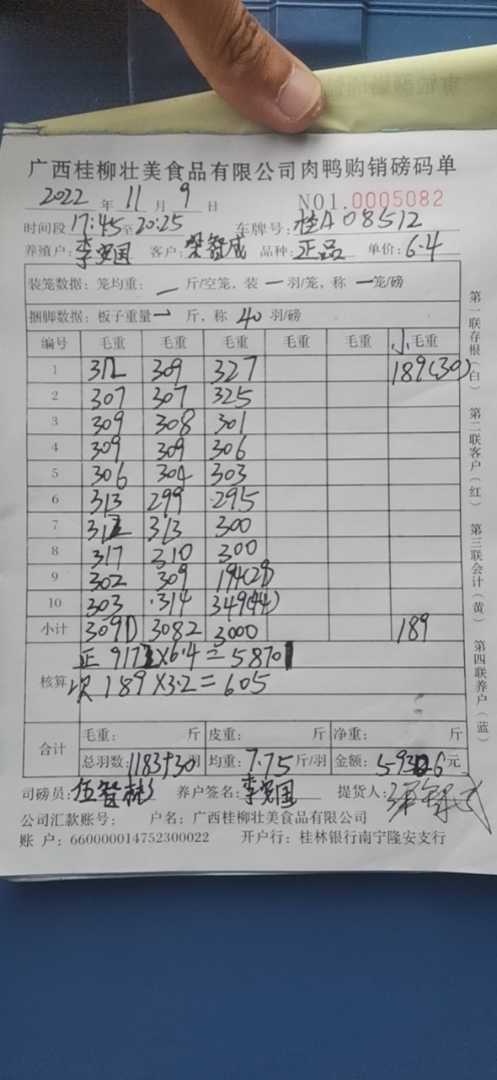 广西桂柳壮美食品有限公司肉鸭购销磅码单
2022 年 11 月 9 日 NO1.0005082
时间段 17:45至20:25 车牌号: 桂A08512
养殖户: 李宝国 客户: 梁智成 品种: 正品 单价: 6.4
装笼数据: 笼均重: — 斤/空笼, 装 — 羽/笼, 称 — 笼/磅
捆脚数据: 板子重量 — 斤, 称 40 羽/磅
编号 毛重 毛重 毛重 毛重 毛重 小毛重
1 312 309 327 189(30)
2 307 307 325
3 309 308 301
4 309 309 306
5 306 304 303
6 313 299 295
7 313 313 300
8 317 310 300
9 302 309 194(29)
10 303 314 349(44)
小计 3091 3082 3000 189
正 9173×6.4=58701
核算 次 189×3.2=605
合计 毛重: 斤 皮重: 斤 净重: 斤
总羽数: 1183+30 羽 均重: 7.75 斤/羽 金额: 59306 元
司磅员: 伍智彬 养户签名: 李宝国 提货人:
公司汇款账号: 户名: 广西桂柳壮美食品有限公司
账 户: 660000014752300022 开户行: 桂林银行南宁隆安支行
第一联存根(白) 第二联客户(红) 第三联会计(黄) 第四联养户(蓝)